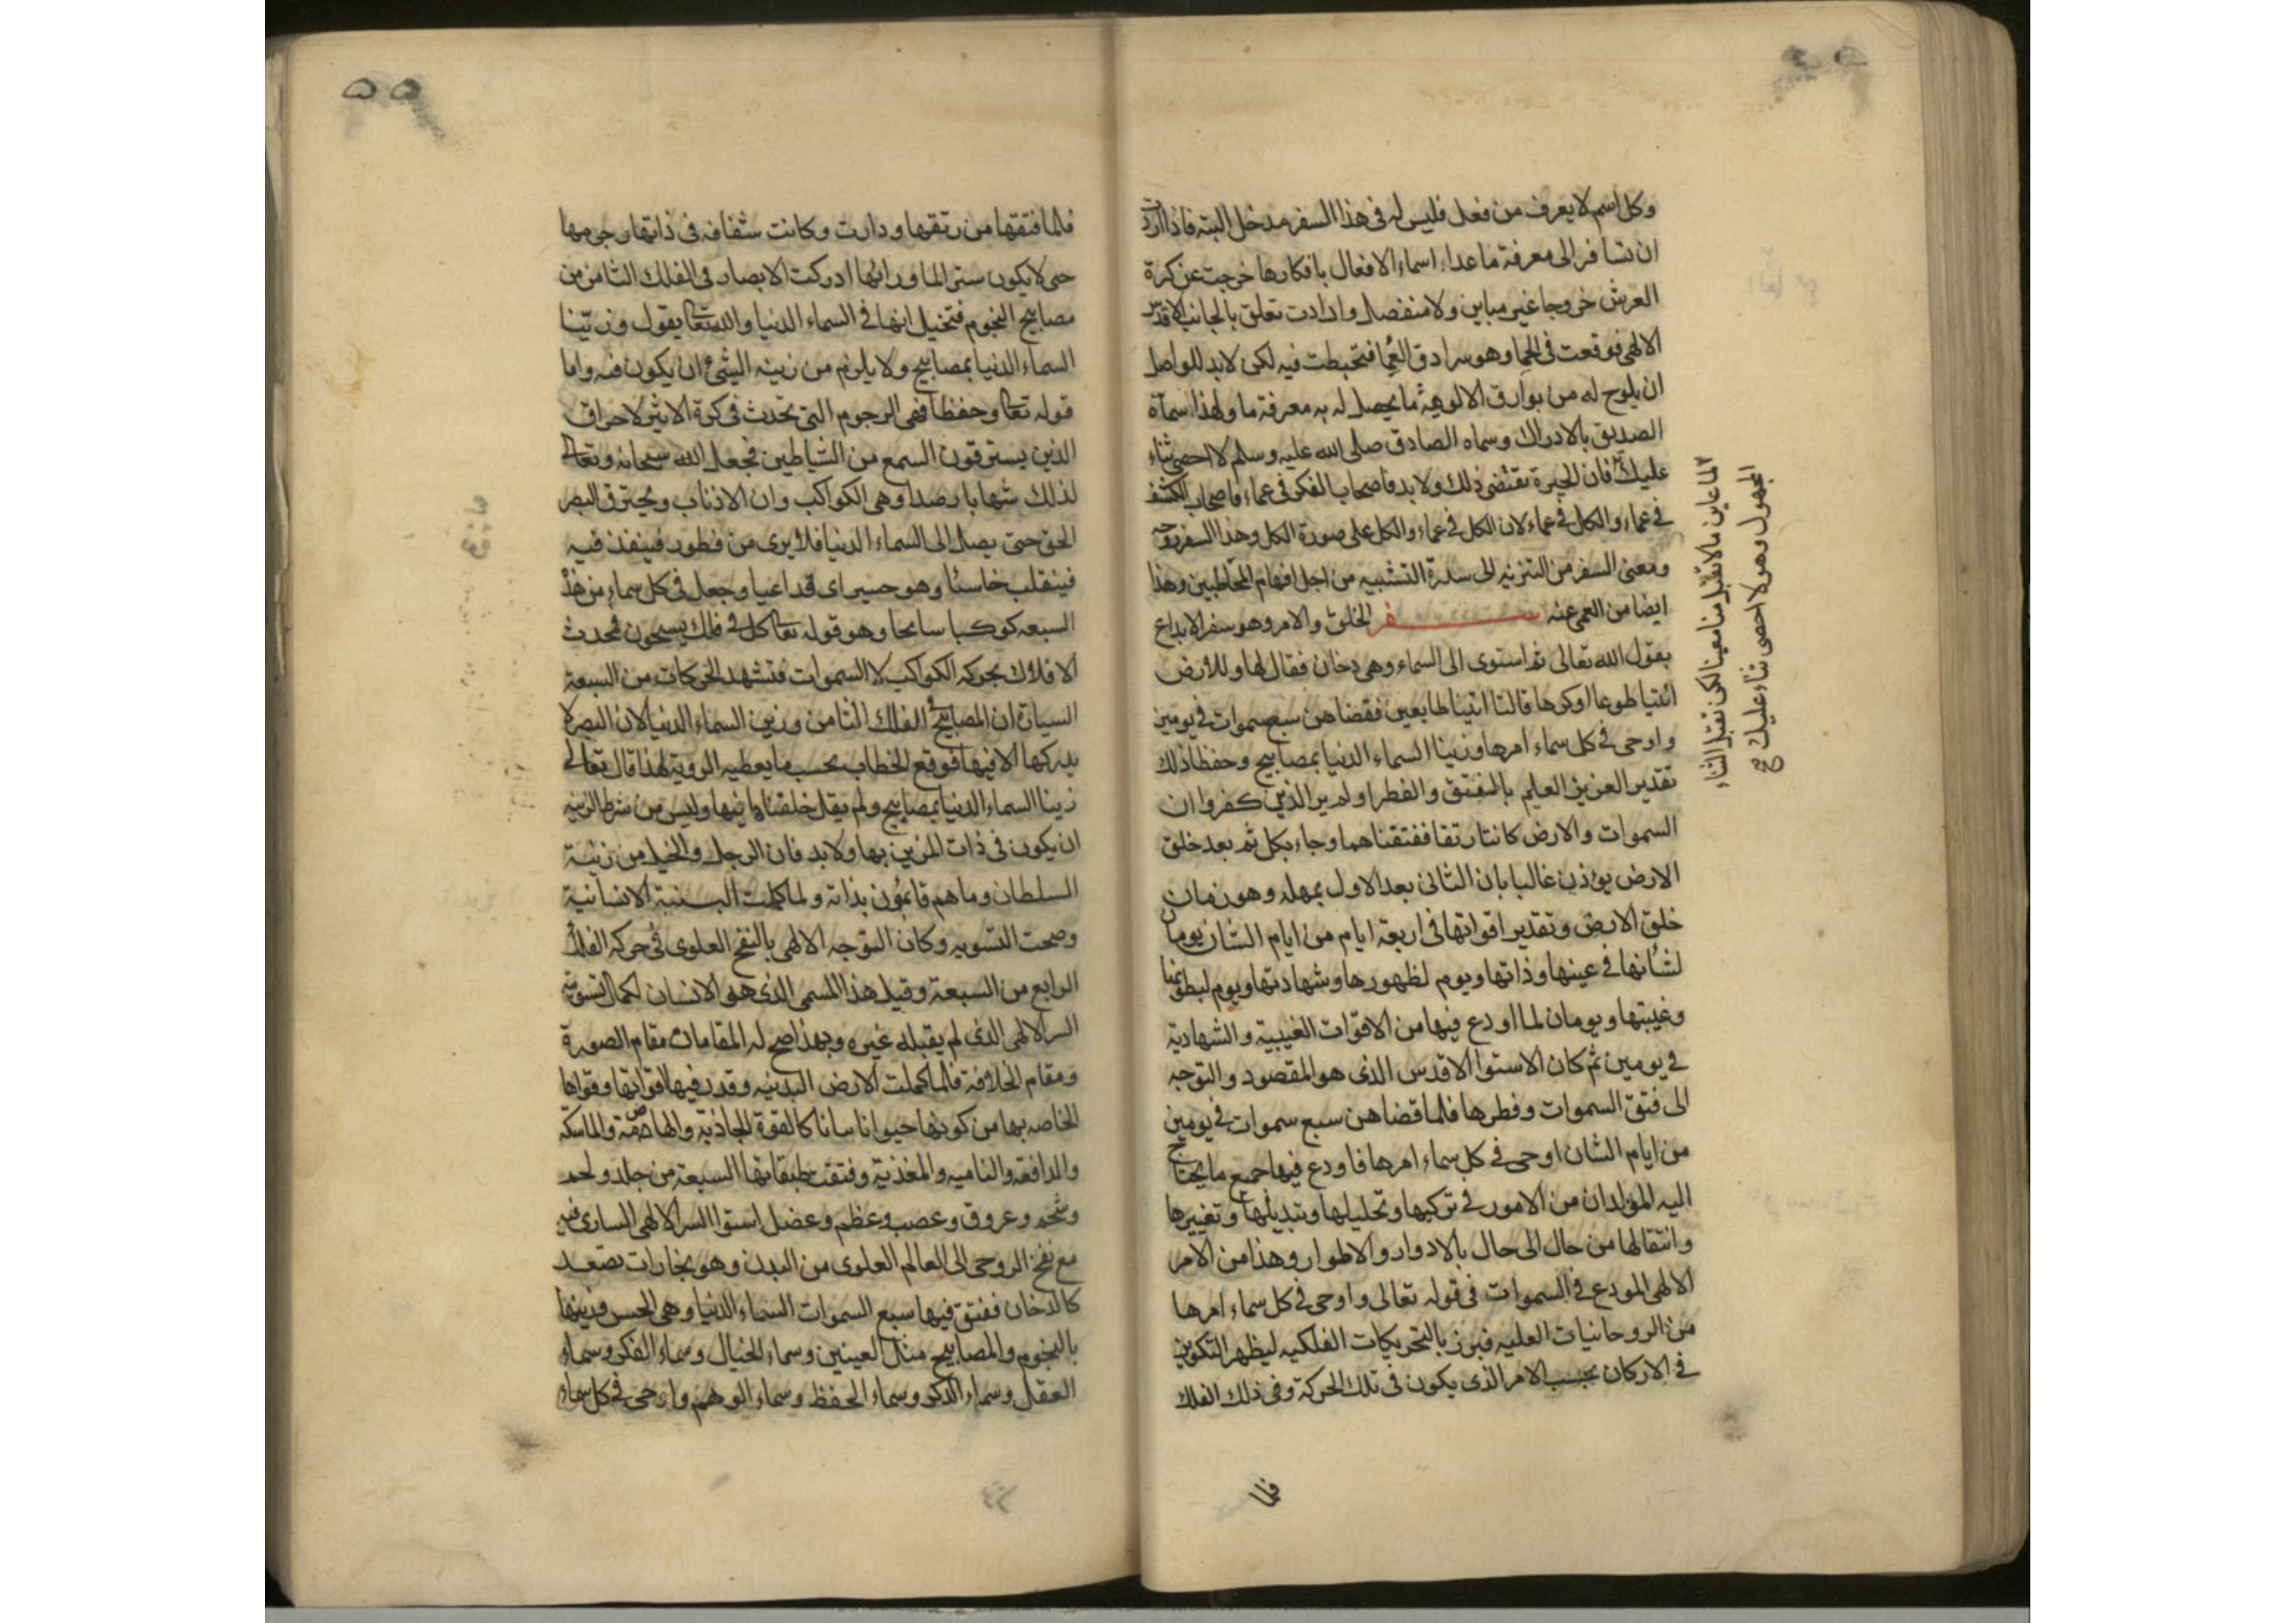 وكل اسم لا يعرف من فعل فليس له فى هذا السفر مدخل البته فاذا اردت
ان تسافر الى معرفة ما عدا اسماء الافعال بافكارها خرجت عن كرة
العرش خروجا غير مباين ولا منفصل وارادت تعلق بالجانب الاقدس
الالهى فوقعت فى الحما وهو سرادق العما فتخبطت فيه لكن لا بد للواصل
ان يلوح له من بوارق الالوهية ما يحصل له به معرفة ما ولهذا سماه
الصديق بالادراك وسماه الصادق صلى الله عليه وسلم لا احصى ثناء
عليك فان الحيرة تقتضى ذلك ولا بد فاصحاب الفكر فى عماء واصحاب الكشف
فى عماء والكل فى عماء لان الكل فى عماء والكل على صورة الكل وهذا السفر روحه
ومعنى السفر من التنزيه الى سدرة التشبيه من اجل افهام المخاطبين وهذا
ايضا من العمى عنه سفر الخلق والامر وهو سفر الابداع
يقول الله تعالى ثم استوى الى السماء وهى دخان فقال لها وللارض
ائتيا طوعا او كرها قالتا اتينا طايعين فقضاهن سبع سموات فى يومين
واوحى فى كل سماء امرها وزينا السماء الدنيا بمصابيح وحفظا ذلك
تقدير العزيز العليم بالفتق والفطر اولم ير الذين كفروا ان
السموات والارض كانتا رتقا ففتقناهما وجاء بكل ثم بعد خلق
الارض يؤذن غالبا بان الثانى بعد الاول بمهله وهو زمان
خلق الارض وتقدير اقواتها فى اربعة ايام من ايام الشان يومان
لشأنها فى عينها وذاتها ويوم لظهورها وشهادتها ويوم لبطونها
وغيبتها ويومان لما اودع فيها من الاقوات الغيبية والشهادية
فى يومين ثم كان الاستوا الاقدس الذى هو المقصود والتوجه
الى فتق السموات وفطرها فلما قضاهن سبع سموات فى يومين
من ايام الشان اوحى فى كل سماء امرها فاودع فيها جميع ما يحتاج
اليه المولدات من الامور فى تركيبها وتحليلها وتبديلها وتغييرها
وانتقالها من حال الى حال بالادوار والاطوار وهذا من الامر
الالهى المودع فى السموات فى قوله تعالى واوحى فى كل سماء امرها
من الروحانيات العليه فبرز بالتحريكات الفلكيه ليظهر التكوين
فى الاركان بحسب الامر الذى يكون فى تلك الحركة وفى ذلك الفلك
فلما
لما عاين ما لا تقبل منا معينا لكن تقبل الثناء
المجهول وهو لا احصى ثناء عليك صح
٥٥
فلما فتقها من رتقها ودارت وكانت شفافه فى ذاتها وجرمها
حتى لا يكون سترا لما ورائها ادركت الابصار فى الفلك الثامن من
مصابيح النجوم فتخيل انها فى السماء الدنيا والله تعالى يقول وزينا
السماء الدنيا بمصابيح ولا يلزم من زينه الشئ ان يكون فيه واما
قوله تعالى وحفظا فهى الرجوم التى تحدث فى كرة الاثير لاحراق
الذين يسترقون السمع من الشياطين فجعل الله سبحانه وتعالى
لذلك شهابا رصدا وهى الكواكب وان الاذناب ويخترق البصر
الحق حتى يصل الى السماء الدنيا فلا يرى من فطور فينفذ فيه
فينقلب خاسئا وهو حسير اى قد اعيا وجعل فى كل سماء من هذه
السبعه كوكبا سابحا وهو قوله تعالى كل فى فلك يسبحون فحدث
الافلاك بحركه الكواكب لا السموات فتشهد الحركات من السبعة
السيارة ان المصابيح فى الفلك الثامن وزين السماء الدنيا لان البصر لا
يدركها الا فيها فوقع الخطاب بحسب ما يعطيه الروية لهذا قال تعالى
زينا السماء الدنيا بمصابيح ولم يقل خلقناها فيها وليس من شرط الزينه
ان يكون فى ذات المزين بها ولا بد فان الرجل والخيل من زينة
السلطان وما هم قائمون بذاته ولما كملت البنية الانسانية
وصحت التسويه وكان التوجه الالهى بالنفخ العلوى فى حركه الفلك
الرابع من السبعة وقبل هذا المسمى الذى هو الانسان لكمال تسويته
السر الالهى الذى لم يقبله غيره وبهذا صح له المقامات مقام الصورة
ومقام الخلافة فلما كملت الارض البدنيه وقدر فيها اقواتها وقواها
الخاصه بها من كونها حيوانا نباتا كالقوة الجاذبة والهاضمة والماسكة
والدافعه والناميه والمغذية وفتقت طبقاتها السبعة من جلد ولحم
وشحم وعروق وعصب وعظم وعضل استوا السر الالهى السارى فيه
مع نفخ الروحى الى العالم العلوى من البدن وهو بخارات تصعد
كالدخان ففتق فيها سبع السموات السماء الدنيا وهى الحس وزينها
بالنجوم والمصابيح مثل العينين وسماء الخيال وسماء الفكر وسماء
العقل وسماء الذكر وسماء الحفظ وسماء الوهم واوحى فى كل سماء